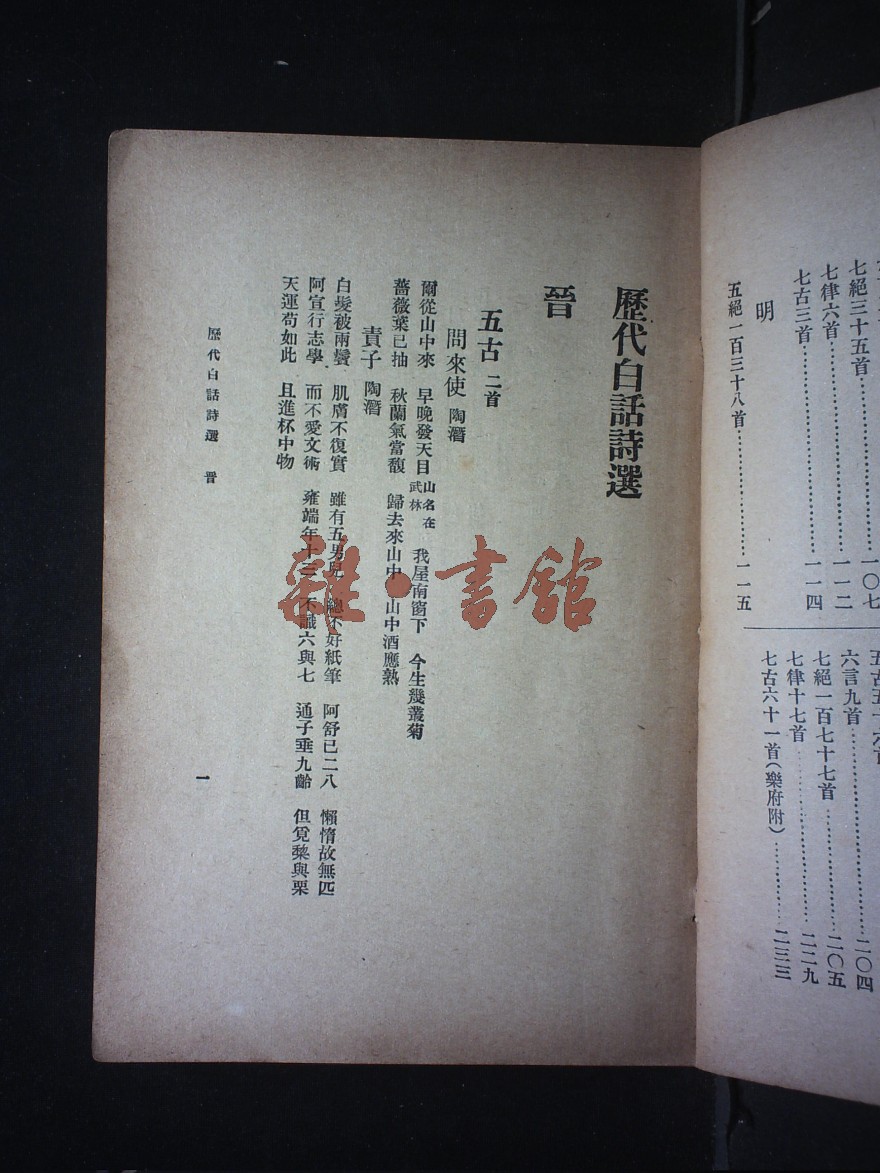 七絕三十五首……………一〇七
七律六首……………一一二
七古三首……………一一四
明
五絕一百三十八首……………一一五
六言九首……………二〇四
七絕一百七十七首……………二〇五
七律十七首……………二二九
七古六十一首(樂府附)……………二三三
歷代白話詩選
晉
五古 二首
問來使 陶潛
爾從山中來 早晚發天目山名在武林 我屋南窗下 今生幾叢菊
薔薇葉已抽 秋蘭氣當馥 歸去來山中 山中酒應熟
責子 陶潛
白髮被兩鬢 肌膚不復實 雖有五男兒 總不好紙筆 阿舒已二八 懶惰故無匹
阿宣行志學 而不愛文術 雍端年十三 不識六與七 通子垂九齡 但覓棃與栗
天運苟如此 且進杯中物
歷代白話詩選 晉
一
雜·書館